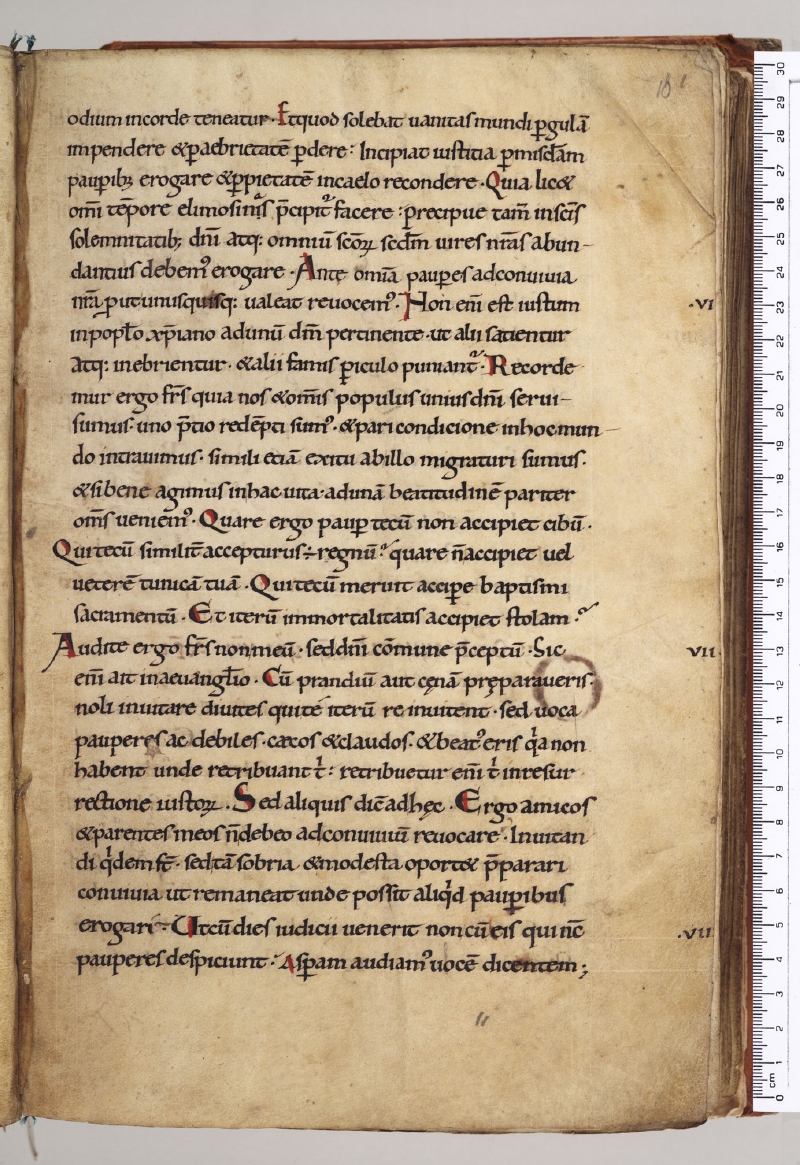 10
odium incorde teneatur. Et quod solebat uanitas mundi ꝑ gulā
impendere & ꝑ aebrietatē ꝑdere: Incipiat iustitia ꝑ misc̄dam
pauꝑib; erogare & ꝑ pietatē incaelo recondere. Quia lic&
om̄i tēpore elimosinis p̄cipit᷑ facere: precipue tam̄ in sc̄is
solemnitatib; dn̄i atq: omniū sc̄oꝝ sc̄dm uires nr̄as abun-
dantius debemꝰ erogare. Ante omīa pauꝑes adconuiuia
nr̄a put unusquisq: ualeat reuocemꝰ. Non em̄ est iustum
VI
inpoplo xp̄iano adunū dn̄m pertinente. ut alii satientur
atq: inebrientur. & alii famis ꝑiculo puniant᷑. Recorde
mur ergo fr̄s quia nos & om̄is populus unius dn̄i serui-
sumus. uno p̄tio redēpti sumꝰ. & pari condicione inhoc mun-
do intrauimus. simili etiā exitu abillo migraturi sumus.
& si bene agimus inhac uita. adunā beatitudinē pariter
om̄s ueniemꝰ. Quare ergo pauꝑ tecū non accipiet cibū.
Qui tecū similit̄ accepturus ÷ regnū. quare n̄ accipiet uel
ueterē tunicā tuā. Qui tecū meruit acciꝑe baptismi
sacramentū. Et iterū inmortalitatis accipiet stolam.
Audite ergo fr̄s non meū. sed dn̄i cōmune p̄ceptū. Sic
VII
em̄ ait in aeuanglio. Cū prandiū aut cęnā pręparaueris.
noli inuitare diuites qui té iterū reinuitent. sed uoca
pauperes ac debiles. cæcos & claudos. & beatꝰ eris q̇a non
habent unde retribuant t̄: retribuetur em̄ t̄ inresur
rectione iustoꝝ. Sed aliquis dic̄ ad hęc. Ergo amicos
& parentes meos n̄ debeo ad conuiuiū reuocare. Inuitan
di q̇dem st̄. sed tā sobria & modesta oport& p̄parari
conuiuia ut remaneat unde possit aliq̇d pauꝑibus
erogari. Ut cū dies iudicii uenerit non cū eis qui nc̄
VII
pauperes despiciunt. Asꝑam audiamꝰ uocē dicentem;